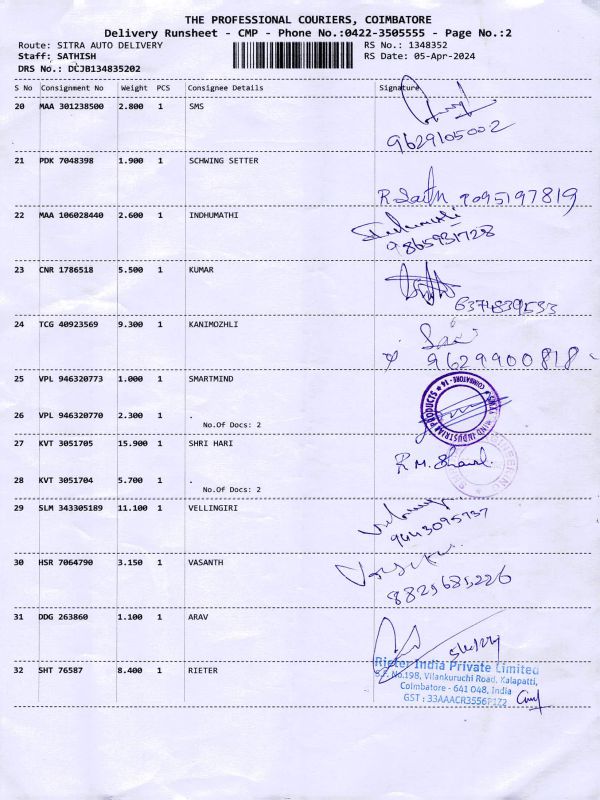 THE PROFESSIONAL COURIERS, COIMBATORE
Delivery Runsheet - CMP - Phone No.:0422-3505555 - Page No.:2
Route: SITRA AUTO DELIVERY RS No.: 1348352
Staff: SATHISH RS Date: 05-Apr-2024
DRS No.: DCJB134835202
S No Consignment No Weight PCS Consignee Details Signature
20 MAA 301238500 2.800 1 SMS
9629105002
21 PDK 7048398 1.900 1 SCHWING SETTER
9095197819
22 MAA 106028440 2.600 1 INDHUMATHI
9865931728
23 CNR 1786518 5.500 1 KUMAR
6374839533
24 TCG 40923569 9.300 1 KANIMOZHLI
9629900818
25 VPL 946320773 1.000 1 SMARTMIND
26 VPL 946320770 2.300 1 .
No.Of Docs: 2
27 KVT 3051705 15.900 1 SHRI HARI
28 KVT 3051704 5.700 1 .
No.Of Docs: 2
29 SLM 343305189 11.100 1 VELLINGIRI
9443095737
30 HSR 7064790 3.150 1 VASANTH
31 DDG 263860 1.100 1 ARAV
32 SHT 76587 8.400 1 RIETER
Rieter India Private Limited
S.F. No.198, Vilankuruchi Road, Kalapatti,
Coimbatore - 641 048, India
GST : 33AAACR3556P1Z2